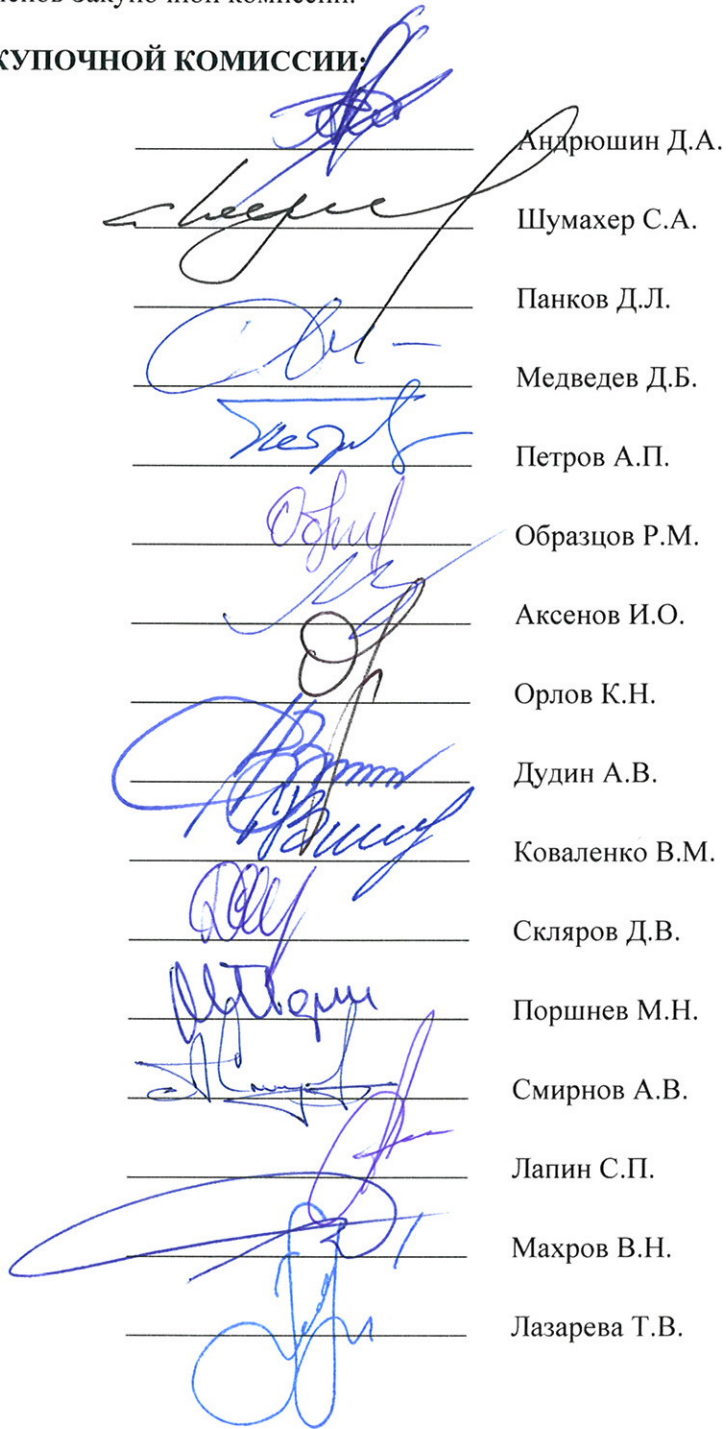 Закупочной комиссии.
КУПОЧНОЙ КОМИССИИ:
Андрюшин Д.А.
Шумахер С.А.
Панков Д.Л.
Медведев Д.Б.
Петров А.П.
Образцов Р.М.
Аксенов И.О.
Орлов К.Н.
Дудин А.В.
Коваленко В.М.
Скляров Д.В.
Поршнев М.Н.
Смирнов А.В.
Лапин С.П.
Махров В.Н.
Лазарева Т.В.